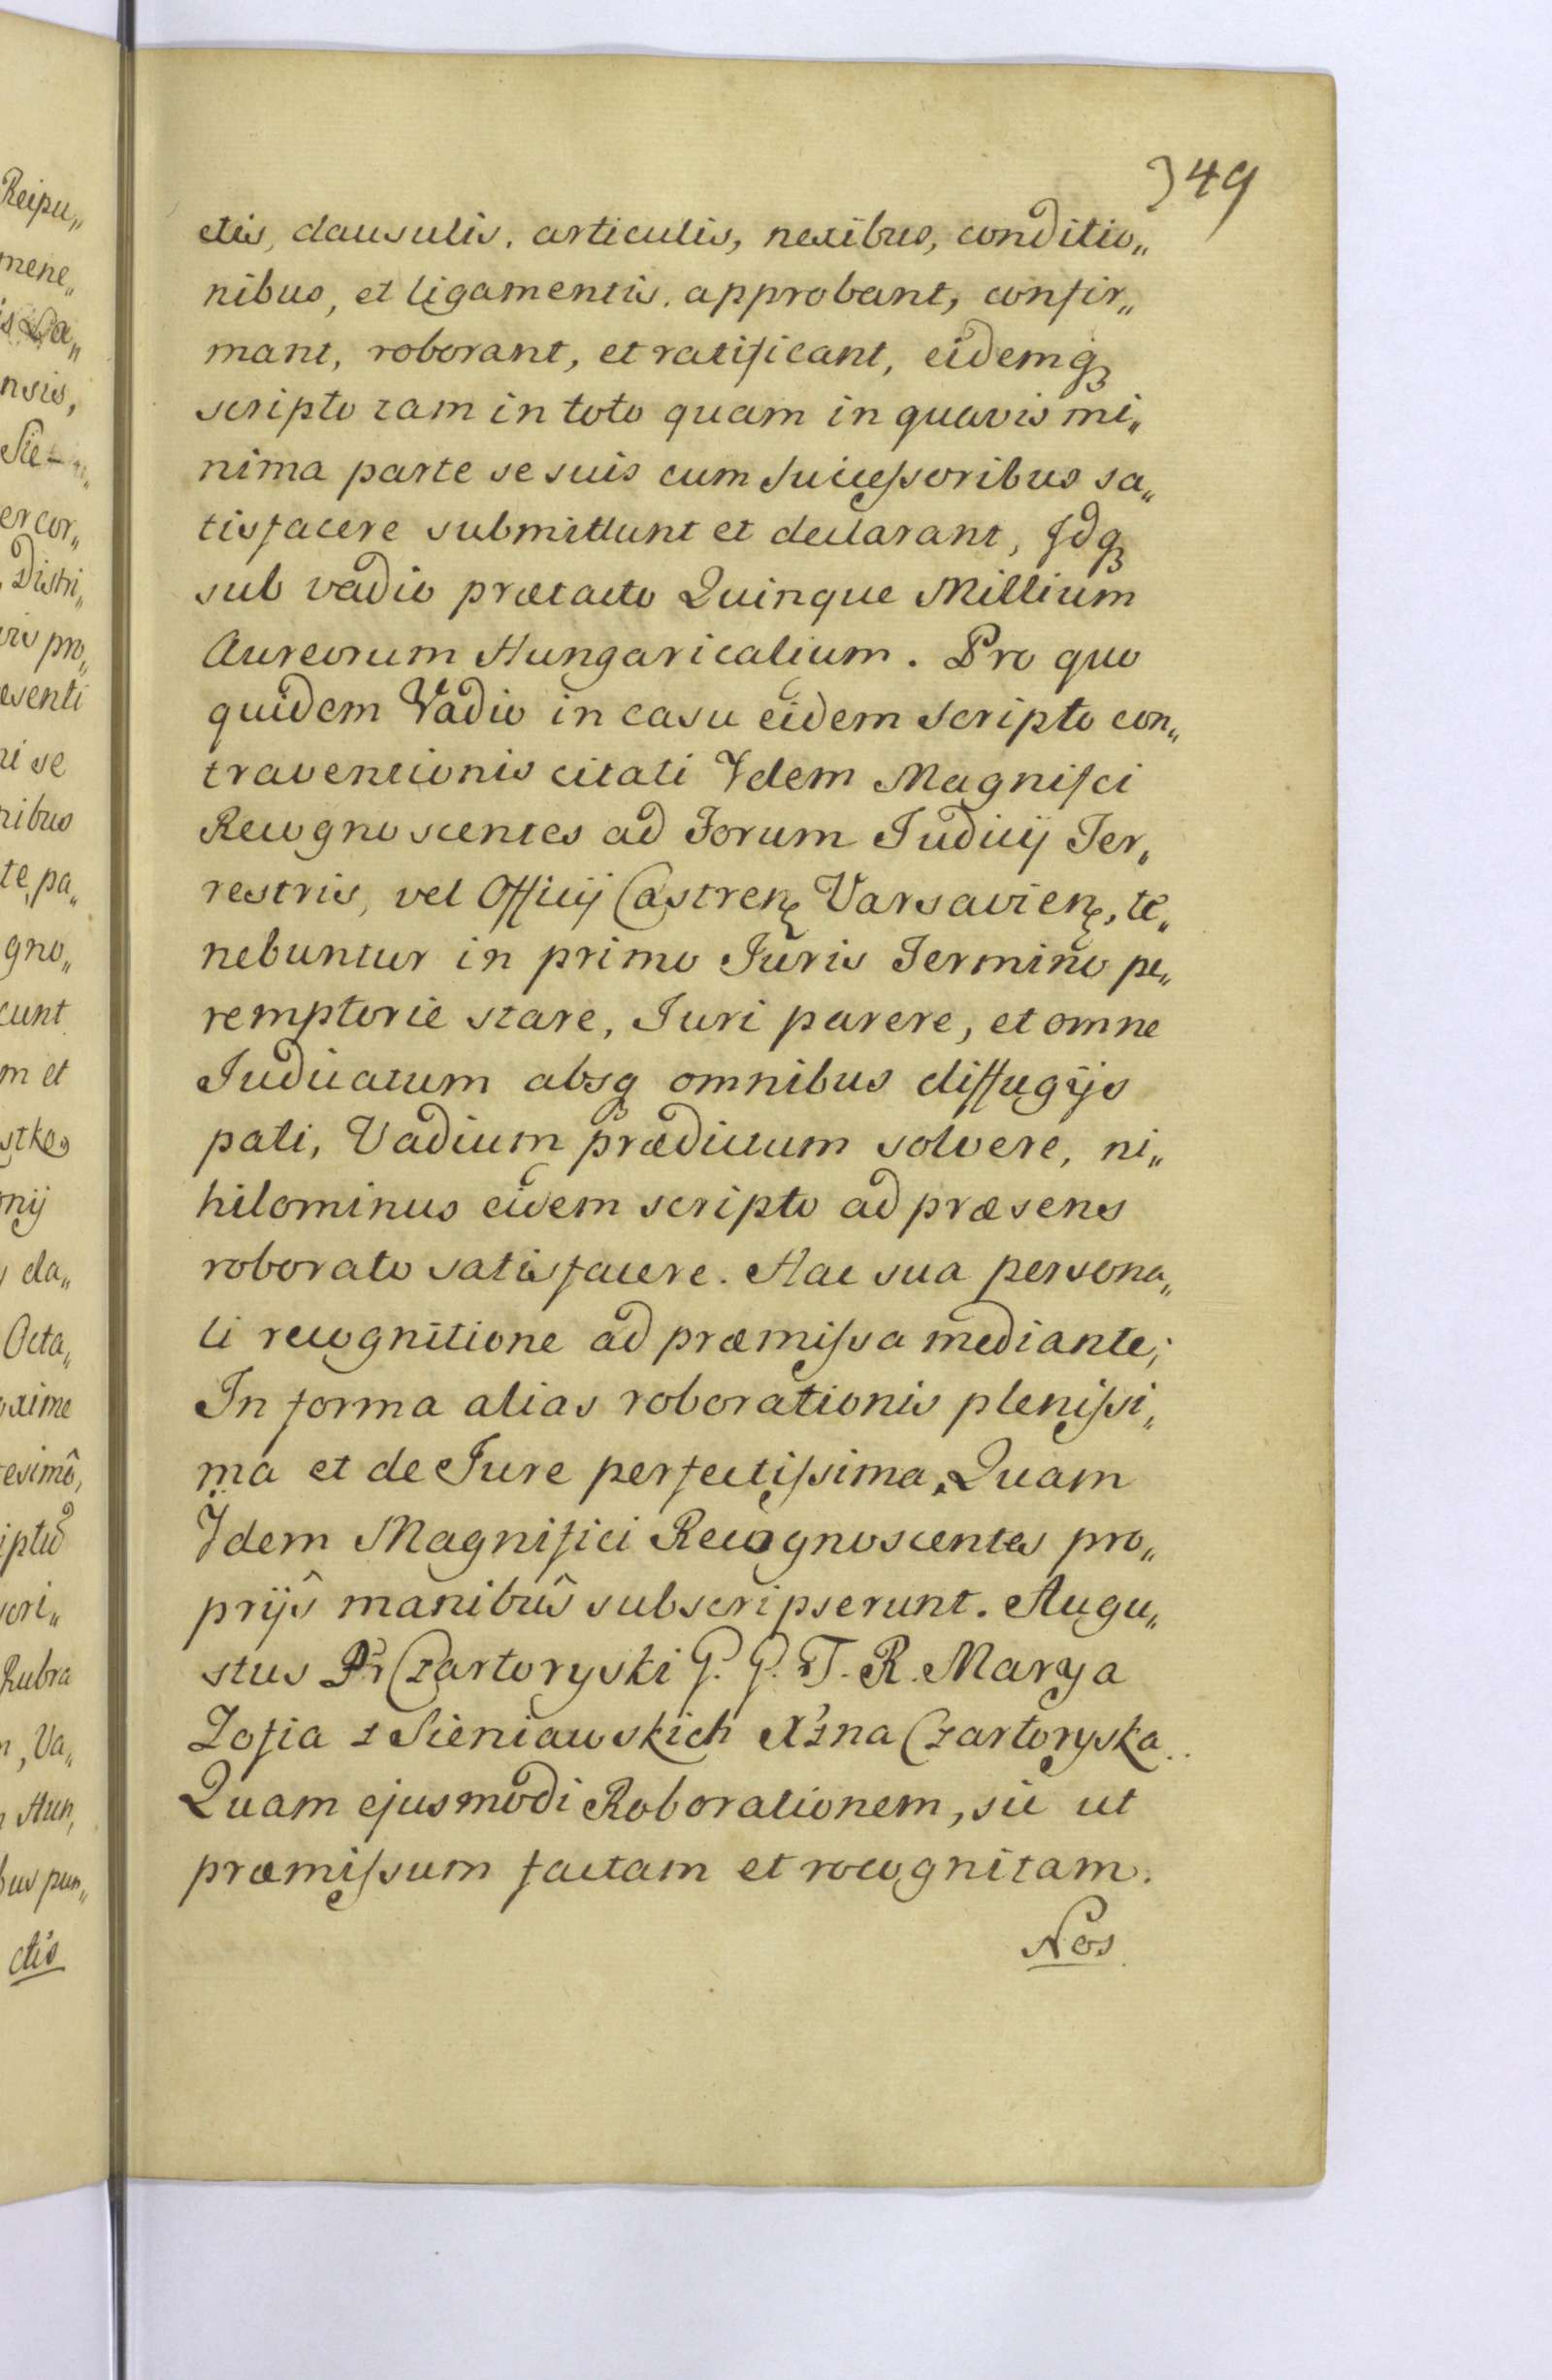 349
ctis, clausulis, articulis, nexibus, conditio„
nibus, et ligamentis, approbant, confir„
mant, roborant, et ratificant, eidemq́ꝫ
scripto tam in toto quam in quavis mi„
nima parte se suis cum Successoribus sa„
tisfacere submittunt et declarant, Idqꝫ
sub vadio prætacto Quinque Millium
Aureorum Hungaricalium. Pro quo
quidem Vadio in casu eidem Scripto con„
traventionis citati Idem Magnifci
Recognoscentes ad Forum Judicij Ter„
restris, vel Officij Castrenꝫ Varsavienꝫ, te„
nebuntur in primo Juris Termino pe„
remptorie stare, Juri parere, et omne
Judicatum absqꝫ omnibus diffugijs
pati, Vadium prædictum solvere, ni„
hilominus eidem scripto ad præsens
roborato satisfacere. Hac sua persona„
li recognitione ad præmissa mediante;
In forma alias roborationis plenissi„
ma et de Jure perfectissima, Quam
Idem Magnifici Recognoscentes pro„
prijs manibus subscripserunt. Augu„
stus Czartoryski G. G. T. R. Marya
Zofia z Sieniawskich X'żna Czartoryska.
Quam ejusmodi Roborationem, sic ut
præmissum factam et recognitam.
Nos
Reipu„
mene„
nsis,
Sie-
er cor„
Distri„
pro„
esenti
ni se
nibus
te, pa„
gno„
cunt
m et
stko
nij
cla„
Octa„
oxime
esimô,
iptū
sori„
Rubra
n, Va„
Hun,
bus pun„
ctis